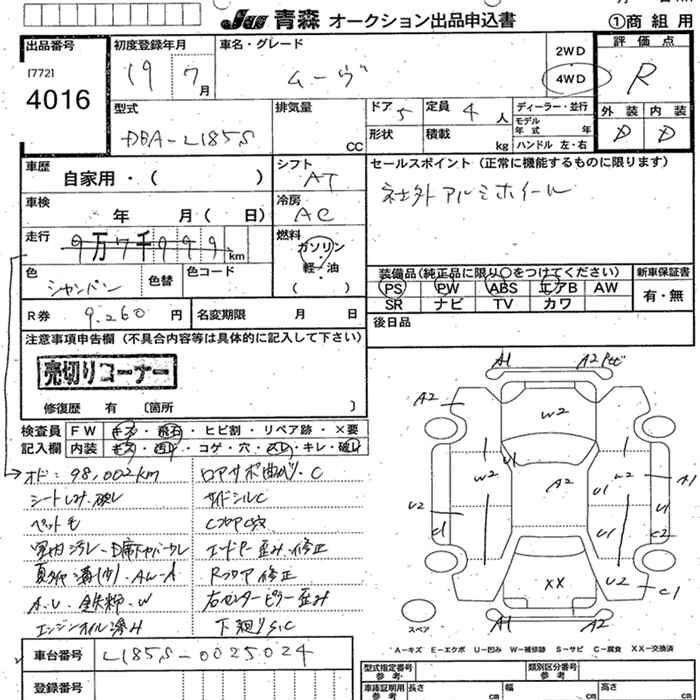 JU 青森 オークション出品申込書 ①商組用
出品番号 初度登録年月 車名・グレード 2WD 評価点
[772] 19 7月 ムーヴ 4WD R
4016
型式 排気量 ドア 5 定員 4人 ディーラー・並行 外装 内装
DBA-L185S cc 形状 積載 kg モデル年式 年 D D
ハンドル 左・右
車歴 シフト セールスポイント (正常に機能するものに限ります)
自家用・( ) AT 社外アルミホイール
車検 年 月( 日) 冷房 AC
走行 9万7千999km 燃料 ガソリン・軽油 ( )
色 シャンパン 色替 色コード
装備品(純正品に限り○をつけてください) 新車保証書
PS PW ABS エアB AW 有・無
SR ナビ TV カワ
R券 9,260円 名変期限 月 日 後日品
注意事項申告欄 (不具合内容等は具体的に記入して下さい)
売切りコーナー
修復歴 有 〔箇所 〕
検査員 FW キズ・飛石・ヒビ割・リペア跡・×要
記入欄 内装 キズ・汚れ・コゲ・穴・スレ・キレ・破レ
オド:98,002km ロアサポ曲がり・C
シートしみ・破レ サイドシルC
ペット毛 CフロアC穴
エンドP歪み・修正
AW-A Rフロア修正
A.U.鉄粉・W 右センターピラー歪み
エンジンオイル滲み 下廻りS,C
車台番号 L185S-0025024
登録番号
A1 A2
A2 W2
W2 U1 A2 U1 W2 A1
U2 U1 U1
C1 U1 C2
XX U2 C1
スペア A1 A2
A=キズ E=エクボ U=凹み W=補修跡 S=サビ C=腐食 XX=交換済
型式指定番号 参考 類別区分番号 参考
車庫証明用 参考 長さ cm 幅 cm 高さ cm